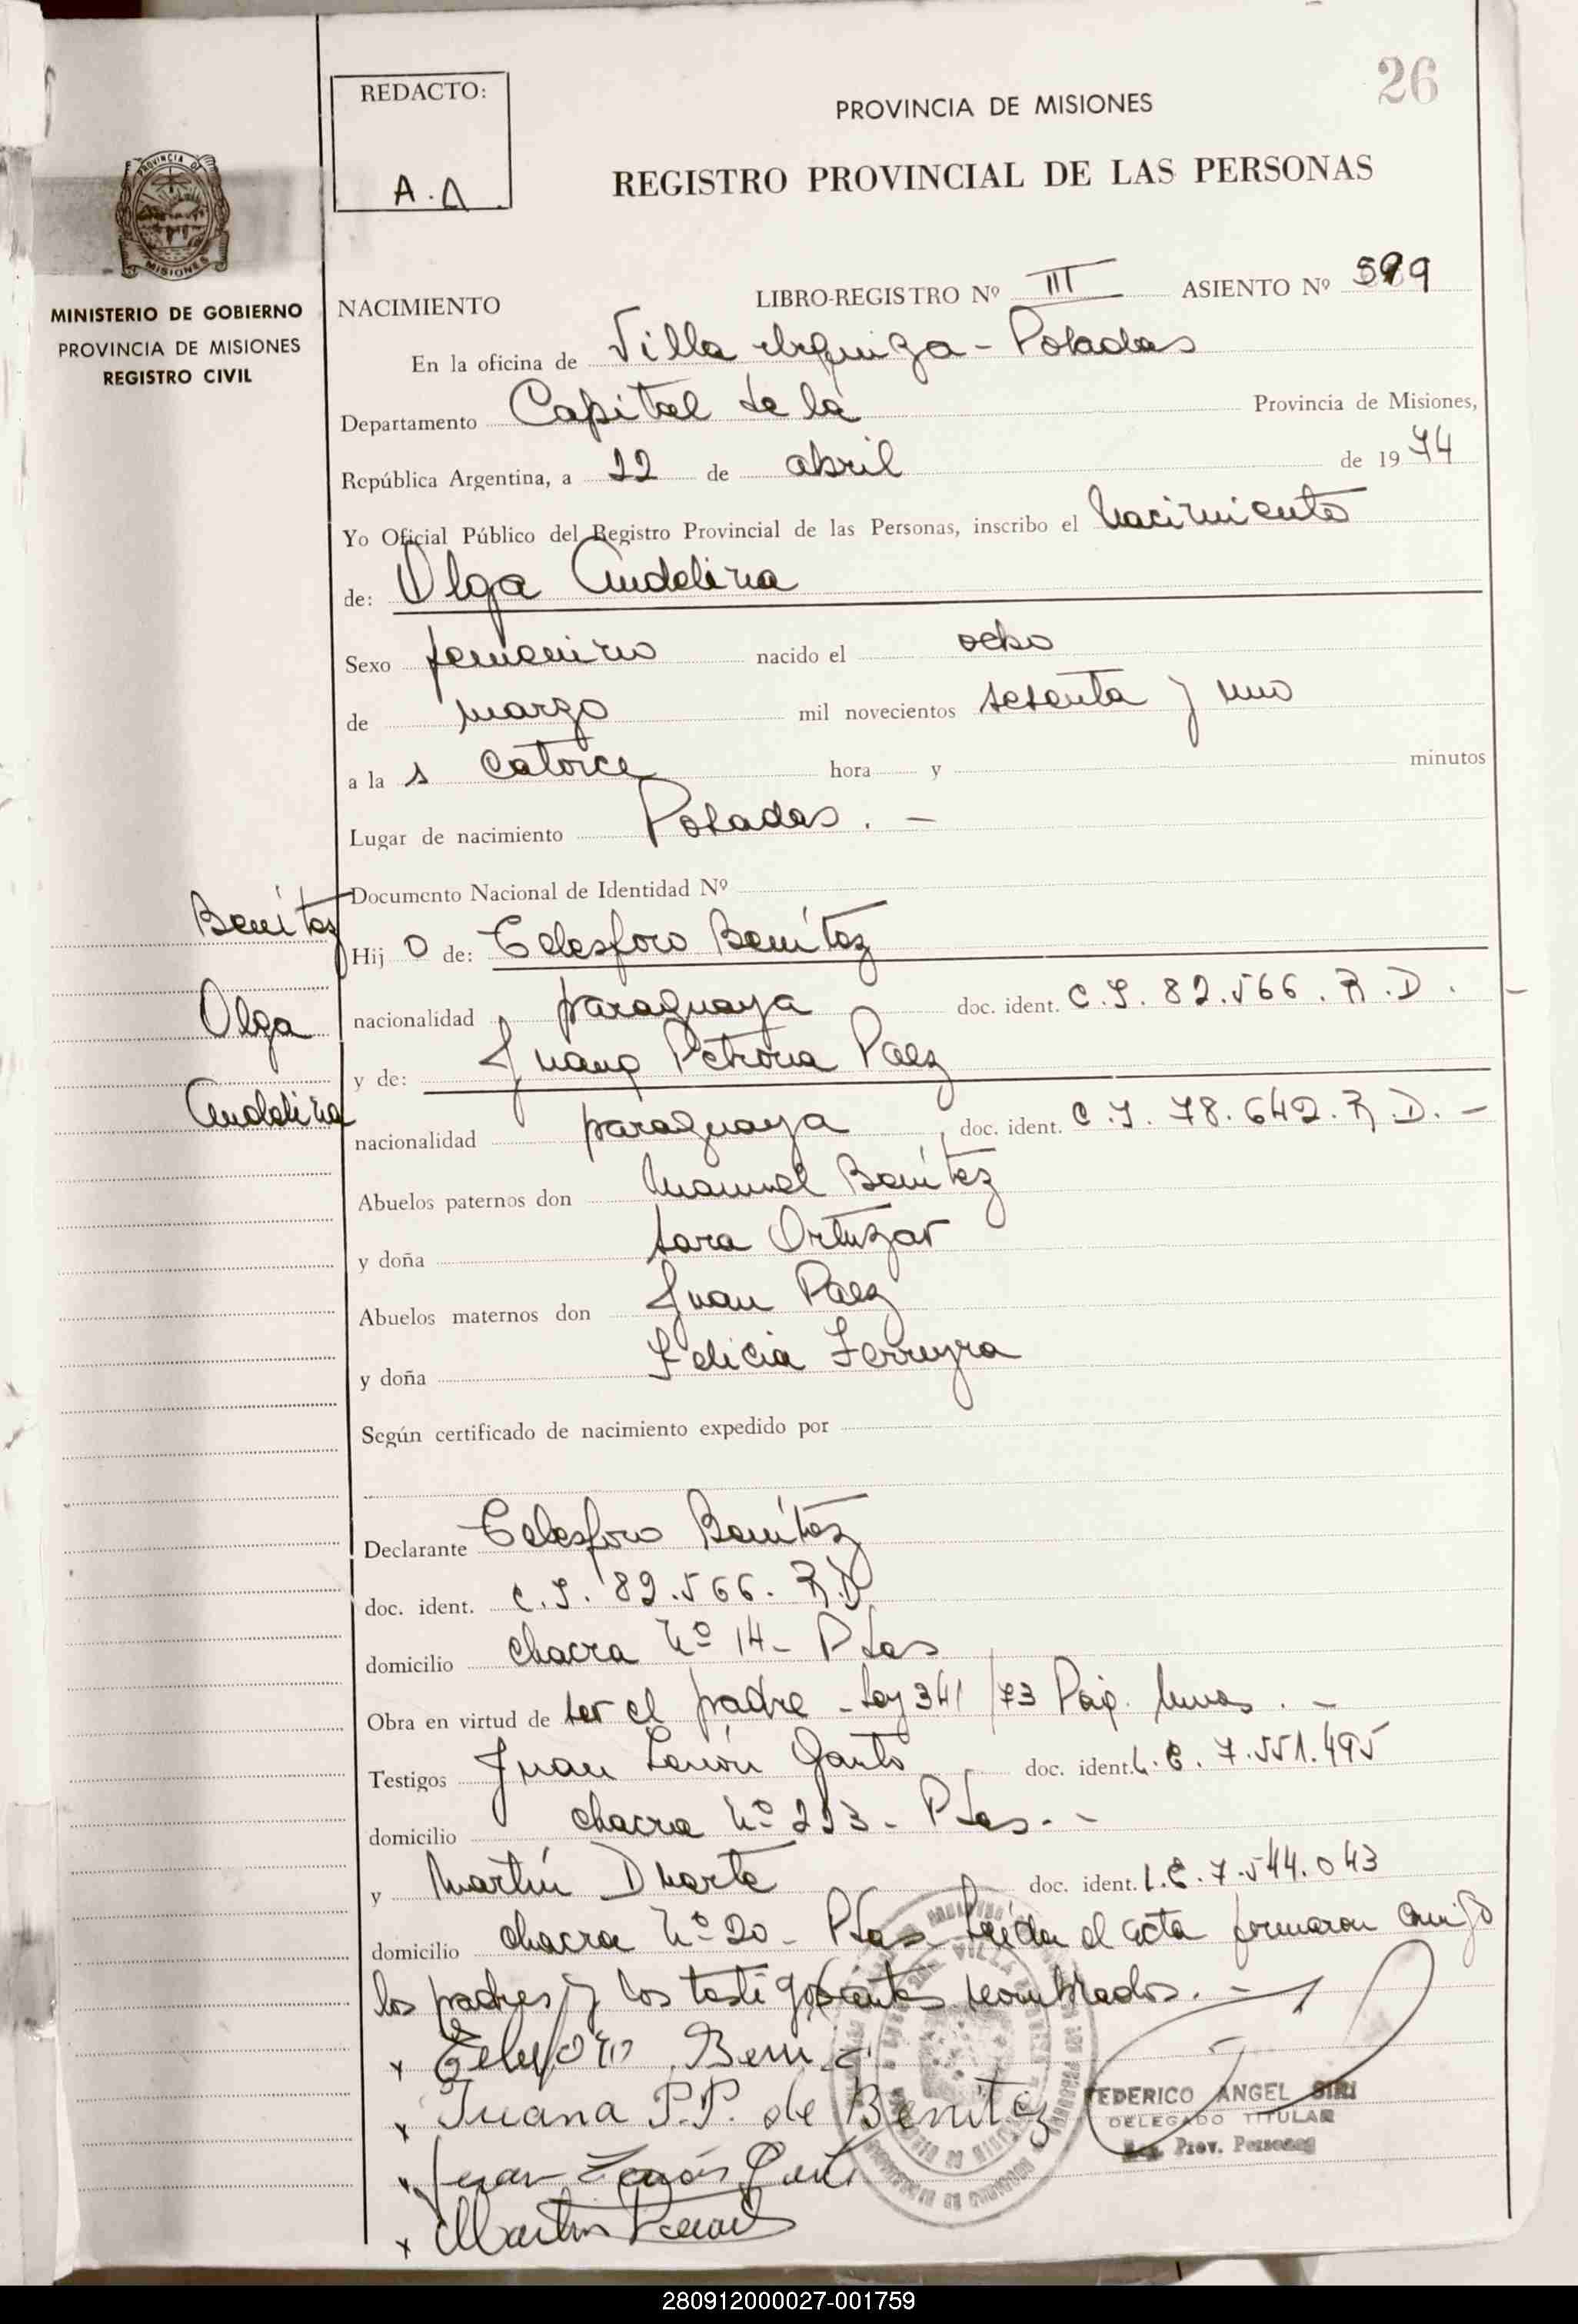 26
REDACTO:
A.A.
PROVINCIA DE MISIONES
REGISTRO PROVINCIAL DE LAS PERSONAS
PROVINCIA DE
MISIONES
MINISTERIO DE GOBIERNO
PROVINCIA DE MISIONES
REGISTRO CIVIL
NACIMIENTO LIBRO-REGISTRO Nº III ASIENTO Nº
En la oficina de Villa Urquiza - Posadas
Departamento Capital de la Provincia de Misiones,
República Argentina, a 22 de abril de 1974
Yo Oficial Público del Registro Provincial de las Personas, inscribo el Nacimiento
de: Olga Audelina
Sexo femenino nacido el ocho
de marzo mil novecientos setenta y uno
a la s catorce hora y minutos
Lugar de nacimiento Posadas. -
Documento Nacional de Identidad Nº
Benítez
Olga
Audelina
Hij o de: Telesforo Benítez
nacionalidad paraguaya doc. ident. C.I. 82.566. R.D. -
y de: Juana Petrona Paez
nacionalidad paraguaya doc. ident. C.I. 78.642. R.D. -
Abuelos paternos don Manuel Benítez
y doña Sara Ortuzar
Abuelos maternos don Juan Paez
y doña Felicia Ferreyra
Según certificado de nacimiento expedido por
Declarante Telesforo Benítez
doc. ident. C.I. 82.566. R.D
domicilio chacra Nº 14 - Pdas
Obra en virtud de ser el padre - Ley 341/73
Testigos Juan Zenón doc. ident. L.E. 7.551.495
domicilio chacra Nº 223 - Pdas. -
y Martín Duarte doc. ident. L.E. 7.544.043
domicilio chacra Nº 20 - Pdas. Leída el acta firmaron conmigo
los padres y los testigos antes nombrados. -
x Telesforo Beni
x Juana P.P. de Benitez
x Juan Zenón
x Martin
FEDERICO ANGEL SIRI
DELEGADO TITULAR
Reg. Prov. Personas
280912000027-001759